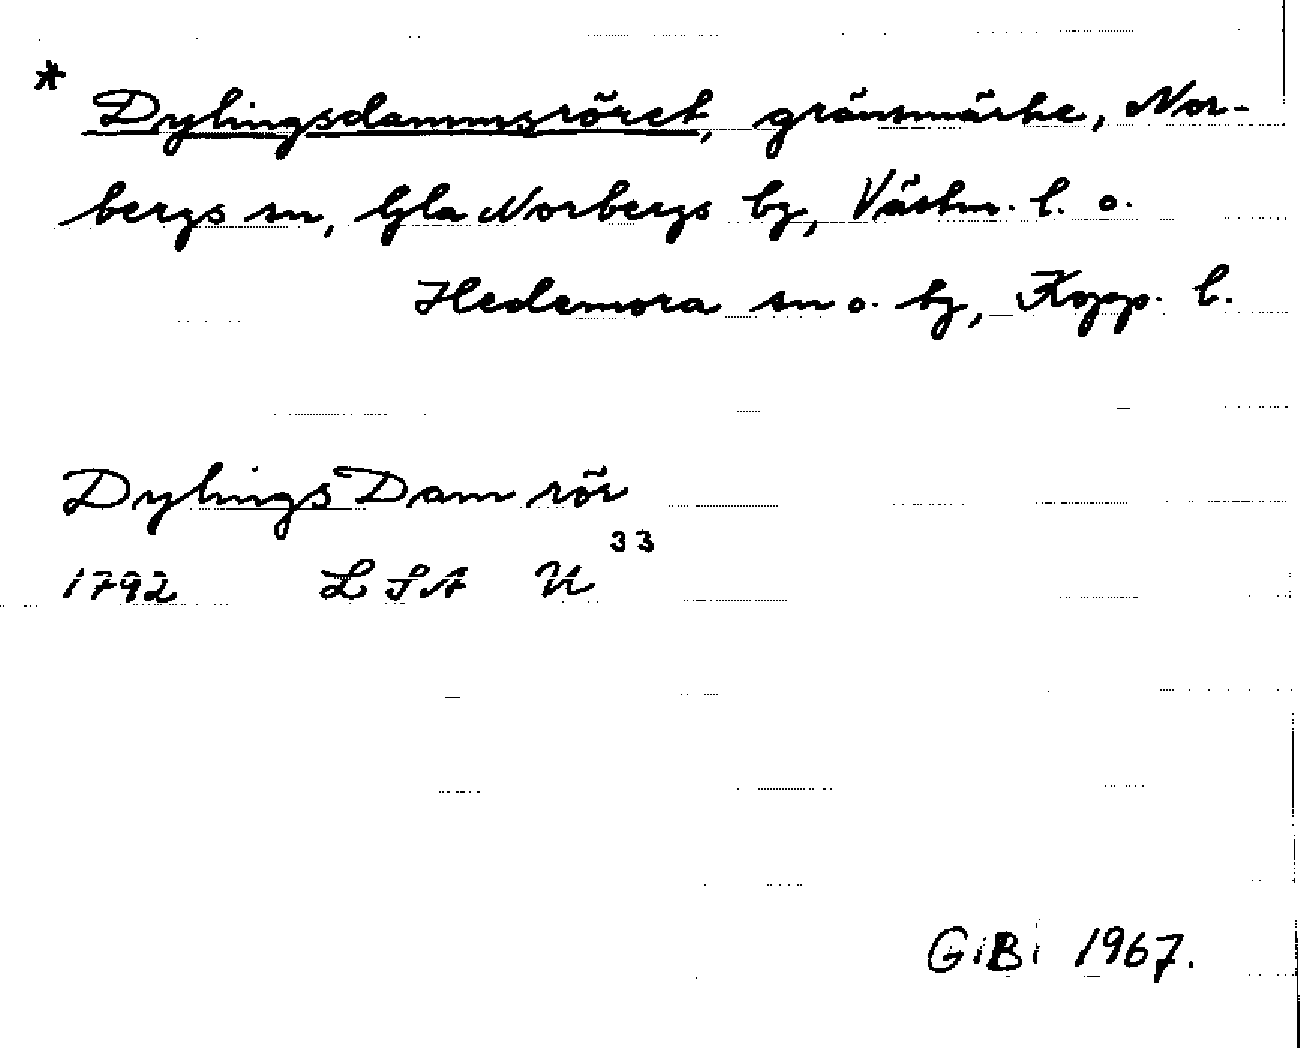 * Dylingsdammsröret, gränsmärke, Nor-
bergs sn, Gla Norbergs by, Västm. l. o.
Hedemora sn o. by, Kopp. l.
Dylings Dam rör
1792 LSA U 33
GiBi 1967.